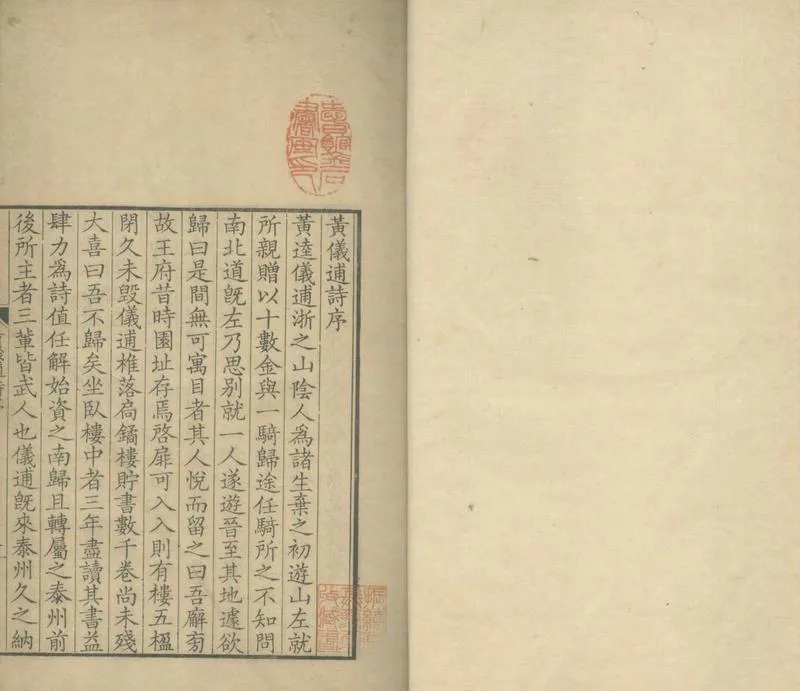 黃儀逋詩序
黃逵儀逋浙之山陰人爲諸生棄之初遊山左就
所親贈以十數金與一騎歸途任騎所之不知問
南北道旣左乃思别就一人遂遊晉至其地遽欲
歸曰是間無可寓目者其人悅而留之曰吾廨旁
故王府昔時園址存焉啓扉可入入則有樓五楹
閉久未毀儀逋椎落扄鐍樓貯書數千卷尚未殘
大喜曰吾不歸矣坐臥樓中者三年盡讀其書益
肆力爲詩值任解始資之南歸且轉屬之泰州前
後所主者三輩皆武人也儀逋旣來泰州久之納